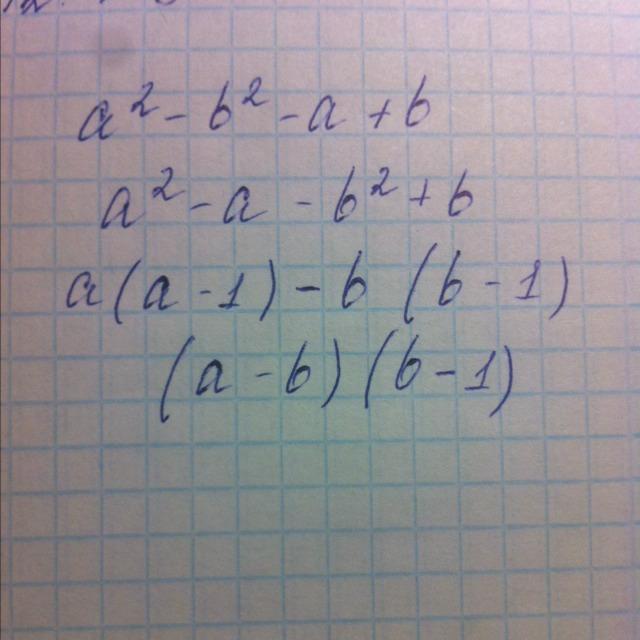 a² - b² - a + b
a² - a - b² + b
a(a - 1) - b (b - 1)
(a - b) (b - 1)